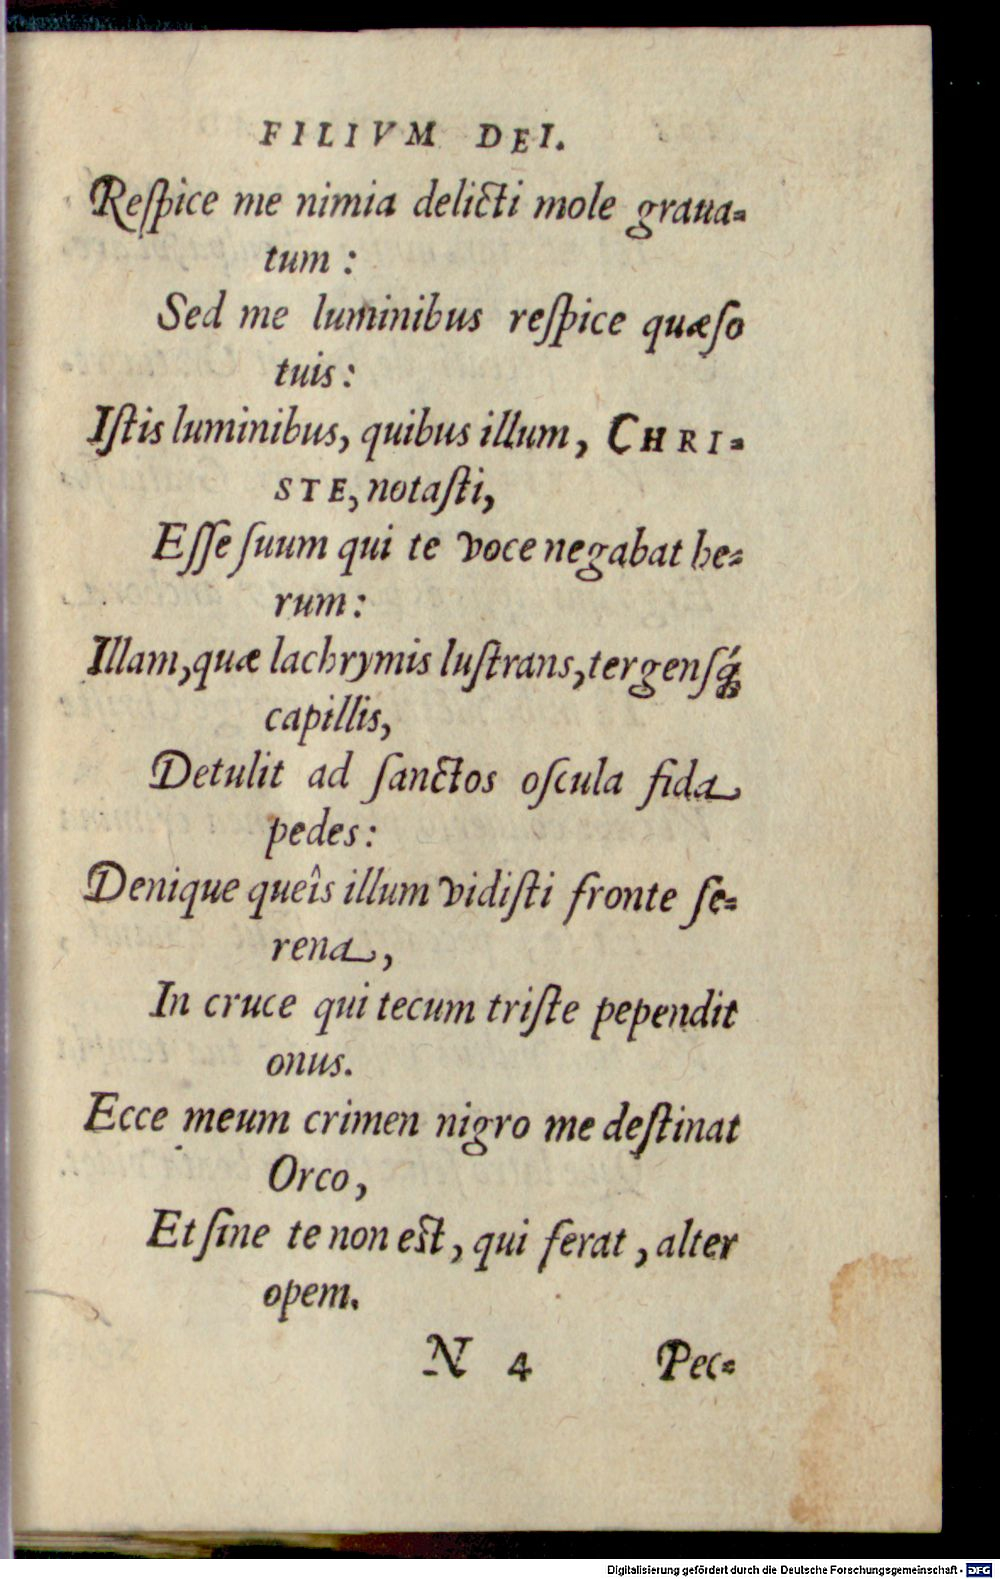 FILIVM DEI.
Reſpice me nimia delicti mole graua-
tum :
Sed me luminibus reſpice quæſo
tuis :
Iſtis luminibus, quibus illum, CHRI-
STE, notaſti,
Eſſe ſuum qui te voce negabat he-
rum :
Illam, quæ lachrymis luſtrans, tergenſq́;
capillis,
Detulit ad ſanctos oſcula fida
pedes :
Denique queîs illum vidiſti fronte ſe-
rena,
In cruce qui tecum triſte pependit
onus.
Ecce meum crimen nigro me deſtinat
Orco,
Et ſine te non eſt, qui ferat, alter
opem.
N 4 Pec-
Digitalisierung gefördert durch die Deutsche Forschungsgemeinschaft - DFG